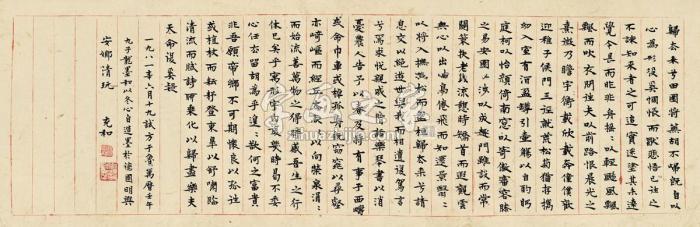 歸去來兮田園將蕪胡不歸既自以
心為形役奚惆悵而獨悲悟已往之
不諫知來者之可追實迷塗其未遠
覺今是而昨非舟搖〻以輕颺風飄
飄而吹衣問征夫以前路恨晨光之
熹微乃瞻衡宇載欣載奔僮僕歡
迎稚子候門三徑就荒松菊猶存攜
幼入室有酒盈樽引壺觴以自酌眄
庭柯以怡顏倚南窗以寄傲審容膝
之易安園日涉以成趣門雖設而常
關策扶老以流憩時矯首而遐觀雲
無心以出岫鳥倦飛而知還景翳〻
以將入撫孤松而盤桓歸去來兮請
息交以絕遊世與我而相遺復駕言
兮焉求悅親戚之情話樂琴書以消
憂農人告予以春及將有事于西疇
或命巾車或棹孤舟既窈窕以尋壑
亦崎嶇而經丘木欣〻以向榮泉涓〻
而始流善萬物之得時感吾生之行
休已矣乎寓形宇內復幾時曷不委
心任去留胡為乎遑〻欲何之富貴
非吾願帝鄉不可期懷良辰以孤往
或植杖而耘耔登東皋以舒嘯臨
清流而賦詩聊乘化以歸盡樂夫
天命復奚疑
一九八一年六月十九試方于魯萬曆壬午
九子龍墨和以冬心自造墨於德國明興
安娜清玩 充和